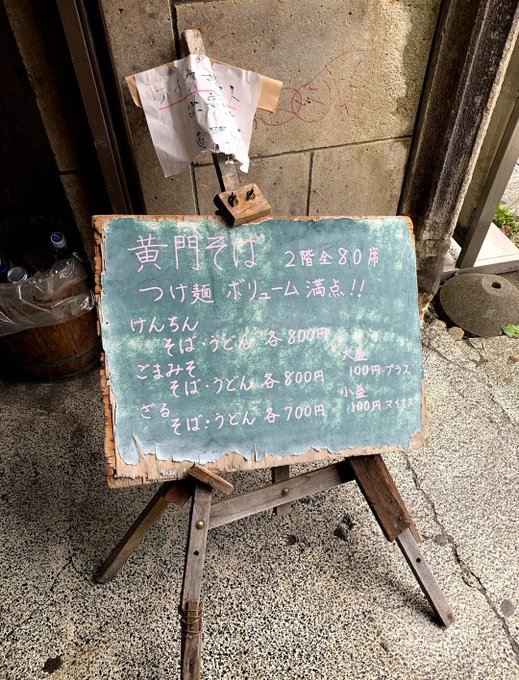 黄門そば 2階全80席
つけ麺 ボリューム満点!!
けんちん
そば・うどん 各800円
ごまみそ
そば・うどん 各800円
大盛
100円プラス
ざる
そば・うどん 各700円
小盛
100円マイナス